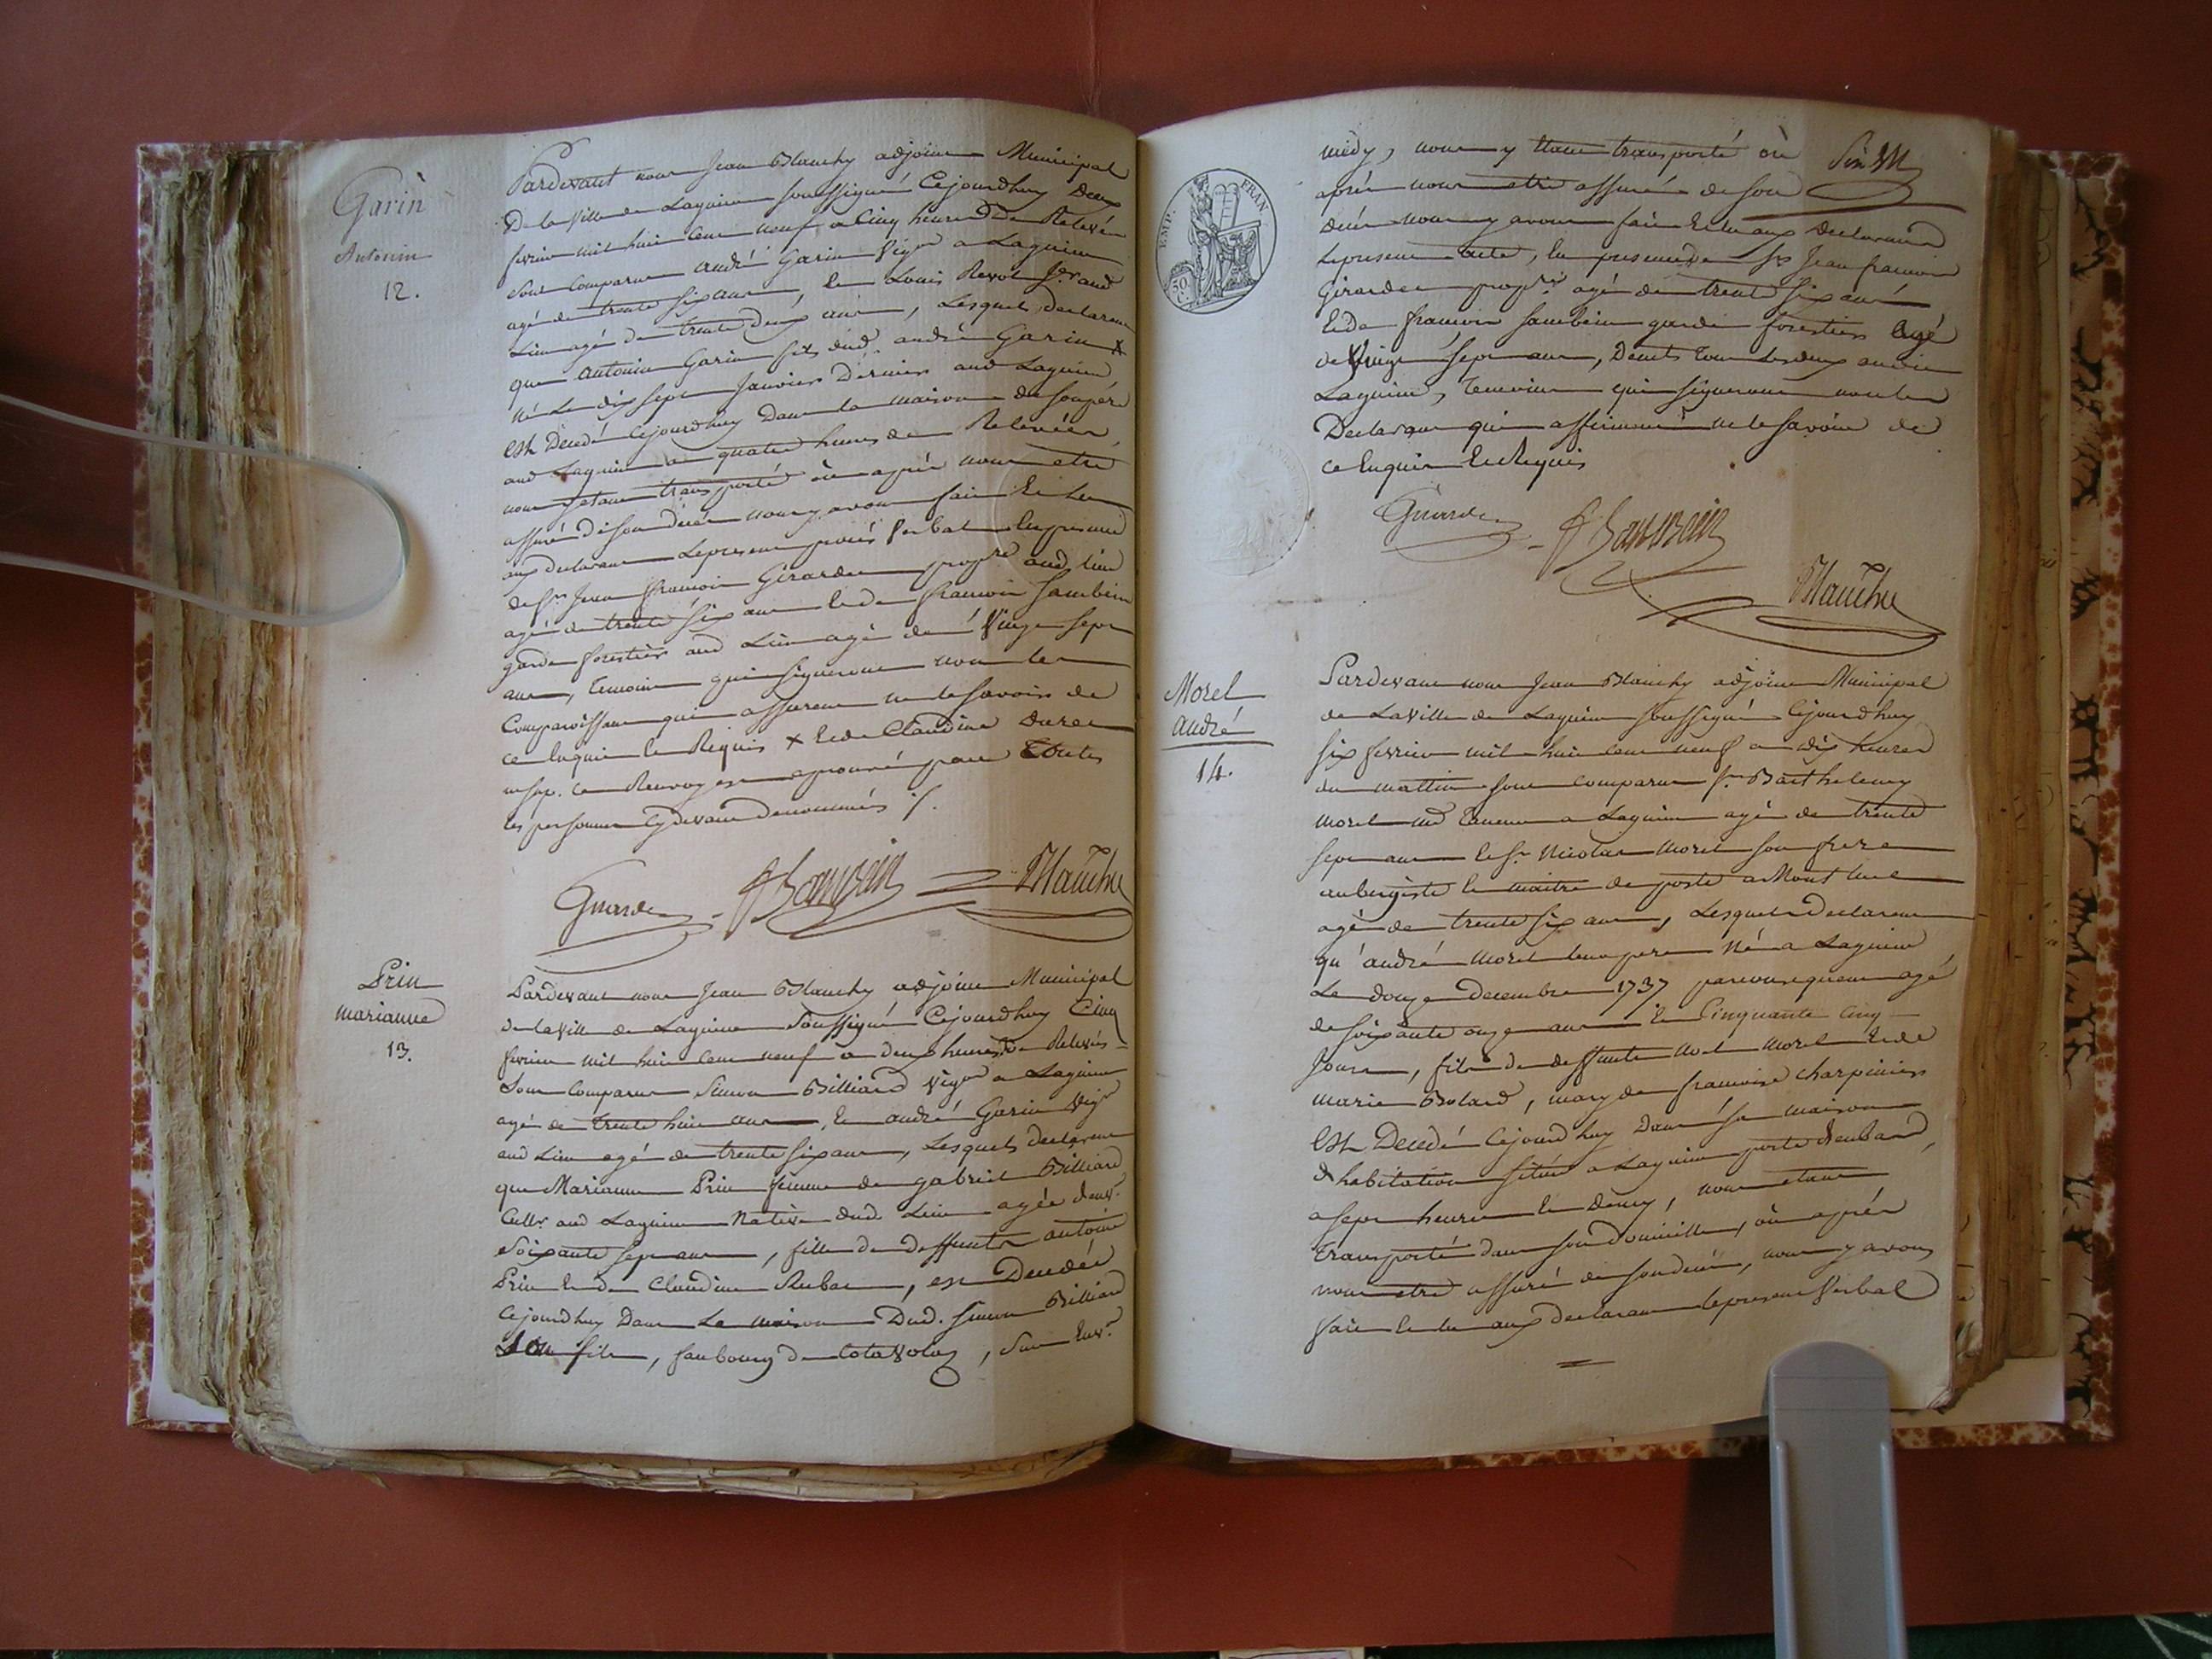 Garin
Antonin
12.
Pardevant nous Jean Blanchy adjoint Municipal
De la ville de Lagnieu soussigné Cejourdhuy Deux
fevrier mil huit cent neuf a Cinq heures de Relevée
sont comparus andré Garin Vigon a Lagnieu
agé de trente six ans, et Louis Revol aud
Lieu agé de trente deux ans, Lesquels declarent
que Antonin Garin fils dud. andré Garin x
né Le dix sept Janvier Dernier aud Lagnieu
Est Decedé Cejourdhuy Dans la maison de son pere
aud Lagnieu a quatre heures de Relevée
nous etant transporté où après nous etre
assuré de son decès nous y avons fait et lu
aux declarants Le present procès Verbal En presence
de sr Jean francois Girardet propre aud lieu
agé de trente six ans et de francois Sambein
garde forestier aud Lieu agé de Vingt sept
ans, temoins qui signeront non les
Comparoissants qui assurent ne le savoir de
ce Enquis et Requis x et de Claudine Duret
ce Renvoy est aprouvé par Toutes
les personnes cydevant denommées ./.
Girardet Sambein Blanchy
Prin
marianne
13.
Pardevant nous Jean Blanchy adjoint Municipal
de la Ville de Lagnieu Soussigné Cejourdhuy Cinq
fevrier mil huit cent neuf a deux heures De Relevée
Sont comparus Simon Billiard Vigon a Lagnieu
agé de trente huit ans, et andré Garin Vigr
aud Lieu agé de trente six ans, Lesquels declarent
que Marianne Prin femme de gabriel Billiard
Cultr aud Lagnieu Native dud Lieu agée denvr.
Soixante sept ans, fille de deffunts antoine
Prin et de Claudine Rubat, est Decedée
Cejourdhuy Dans La maison Dud. Simon Billiard
Son fils, faubourg de, Sur Les
midy, nous y etant transporté où
après nous etre assuré de son
decès nous y avons fait et lu aux declarants
Le present acte, En presence de sr Jean francois
Girardet propre agé de trente six ans
Et de francois Sambein garde forestier agé
de Vingt sept ans, Demts Tous Les deux audit
Lagnieu, temoins qui signeront non les
Declarants qui affirment ne le savoir de
ce Enquis Et Requis
Girardet Sambein
Blanchy
EMP. FRAN.
50 C.
Morel
andré
14.
Pardevant nous Jean Blanchy adjoint Municipal
de La Ville de Lagnieu soussigné Cejourdhuy
six fevrier mil huit cent neuf a dix heures
du mattin sont comparus sr Barthelemy
morel md Taneur a Lagnieu agé de trente
sept ans et sr Nicolas morel son frere
aubergiste et maitre de poste a Mont luel
agé de trente six ans, Lesquels declarent
qu'andré morel leur pere Né a Lagnieu
Le douze Decembre 1737 par consequent agé
de soixante onze ans et Cinquante Cinq
Jours, fils de deffunts Noel morel Et de
marie Bolard, mary de francoise charpinier
Est Decedé Cejourdhuy Dans sa maison
d habitation située a Lagnieu porte,
a sept heures et demy, nous etant
transporté dans son Domicille, où après
nous etre assuré de son decès, nous y avons
fait et lu aux declarants le present Verbal